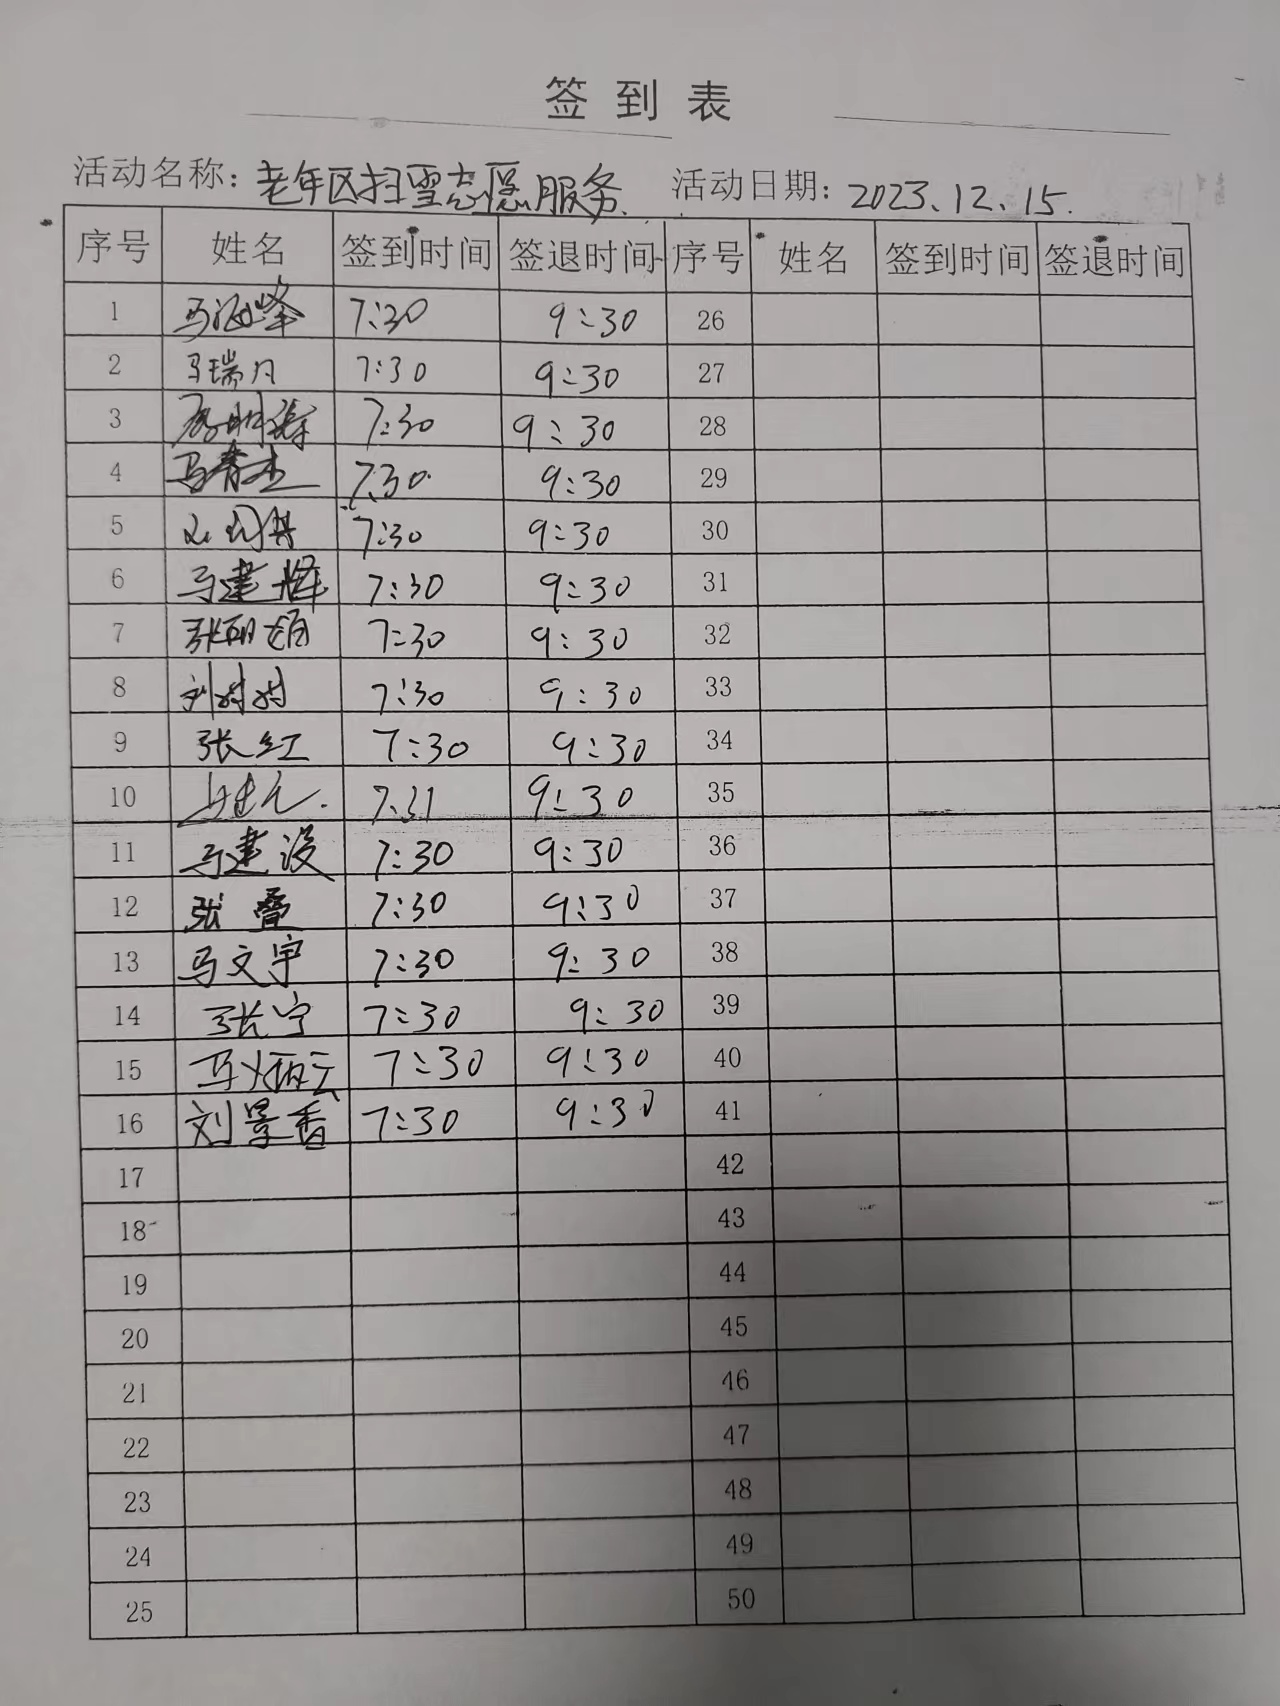 签到表
活动名称：老年区扫雪志愿服务 活动日期：2023.12.15.
序号 姓名 签到时间 签退时间 序号 姓名 签到时间 签退时间
1 马海峰 7:30 9:30 26
2 马瑞凡 7:30 9:30 27
3 7:30 9:30 28
4 马青杰 7:30 9:30 29
5 7:30 9:30 30
6 马建辉 7:30 9:30 31
7 7:30 9:30 32
8 7:30 9:30 33
9 张红 7:30 9:30 34
10 7:31 9:30 35
11 马建设 7:30 9:30 36
12 张叠 7:30 9:30 37
13 马文宇 7:30 9:30 38
14 张宁 7:30 9:30 39
15 马炳云 7:30 9:30 40
16 刘景香 7:30 9:30 41
17 42
18 43
19 44
20 45
21 46
22 47
23 48
24 49
25 50